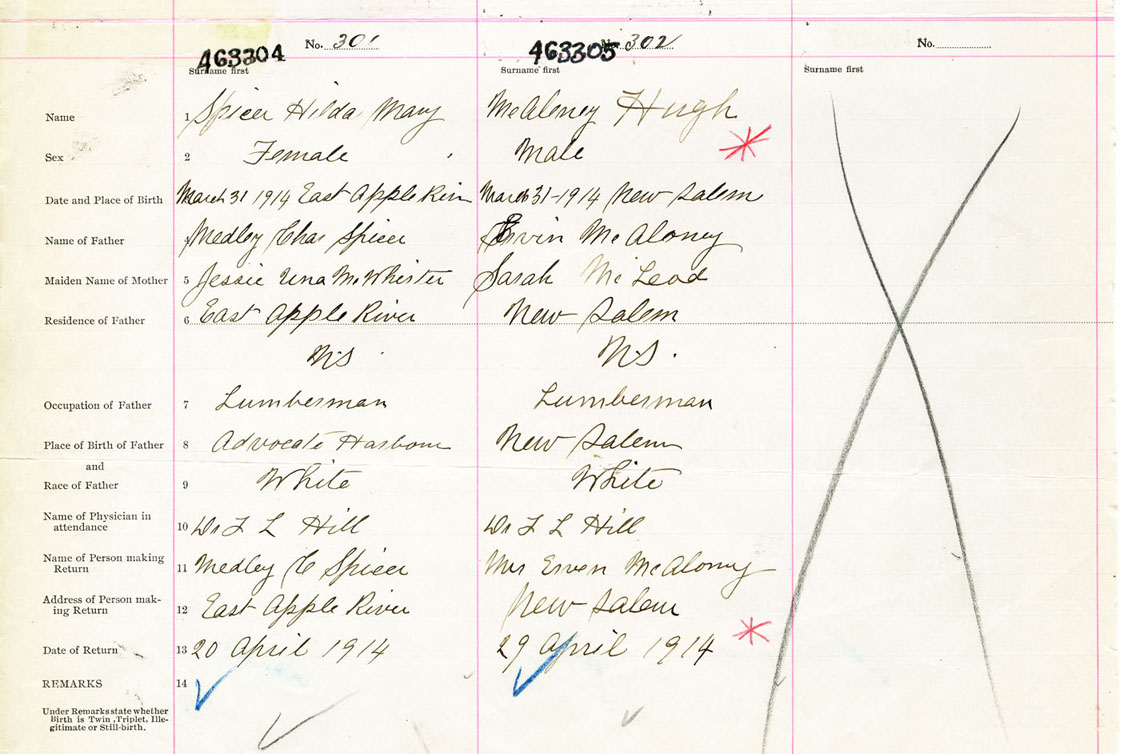 463304 No. 301 463305 No. 302 No.
Surname first Surname first Surname first
Name 1 Spicer Hilda Mary McAloney Hugh
Sex 2 Female Male
Date and Place of Birth March 31 1914 East Apple River March 31-1914 New Salem
Name of Father 4 Medley Chas Spicer Ervin McAloney
Maiden Name of Mother 5 Jessie Una McWhirter Sarah McLeod
Residence of Father 6 East Apple River New Salem
NS NS.
Occupation of Father 7 Lumberman Lumberman
Place of Birth of Father 8 Advocate Harbour New Salem
and
Race of Father 9 White White
Name of Physician in
attendance 10 Dr F L Hill Dr F L Hill
Name of Person making
Return 11 Medley C Spicer Mrs Erven McAloney
Address of Person mak-
ing Return 12 East Apple River New Salem
Date of Return 13 20 April 1914 29 April 1914
REMARKS 14
Under Remarks state whether
Birth is Twin, Triplet, Ille-
gitimate or Still-birth.